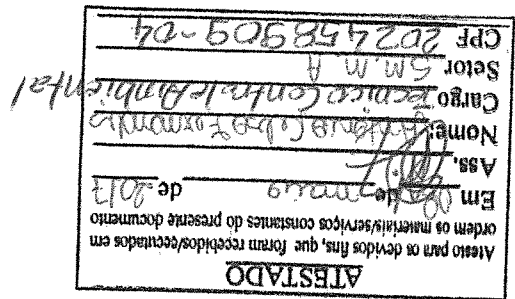 ATESTADO
Atesto para os devidos fins, que foram recebidos/executados em
ordem os materiais/serviços constantes do presente documento
Em de maio de 2017
Ass.
Nome: Antônio Fernandes
Cargo Técnico Controle Ambiental
Setor S.M.M.A
CPF 202458909-04